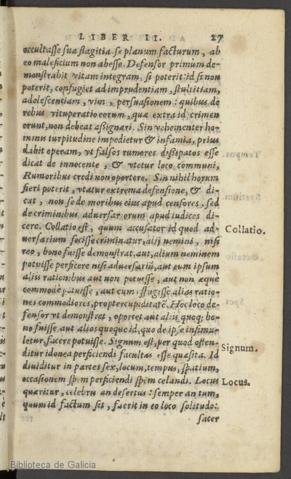 LIBER II. 27
occultasse sua flagitia se planum facturum, ab
eo maleficium non abesse. Defensor primum de-
monstrabit vitam integram, si poterit: id si non
poterit, confugiet ad imprudentiam, stultitiam,
adolescentiam, vim, persuasionem: quibus de
rebus vituperatio eorum, quæ extra id crimen
erunt, non debeat assignari. Sin vehementer ho-
minis turpitudine impedietur & infamia, prius
dabit operam, vt falsos rumores dissipatos esse
dicat de innocente, & vtetur loco communi,
Rumoribus credi non oportere. Sin nihil horum
fieri poterit, vtatur extrema defensione, & di-
cat, non se de moribus eius apud censores, sed
de criminibus aduersariorum apud iudices di-
cere. Collatio est, quum accusator id quod ad-
uersarium fecisse criminatur, alij nemini, nisi
reo, bono fuisse demonstrat, aut, alium neminem
potuisse perficere nisi aduersariũ, aut eum ipsum
aliis rationibus aut non potuisse, aut non æque
commode potuisse, aut eum fugisse alias ratio-
nes commodiores, propter cupiditatẽ. Hoc loco de-
fensor vt demonstret, oportet aut aliis quoq; bo-
no fuisse, aut alios quoque id, quo de ipse insimu-
letur, facere potuisse. Signum est, per quod osten-
ditur idonea perficiendi facultas esse quæsita. Id
diuiditur in partes sex, locum, tempus, spatium,
occasionem, spem perficiendi, spem celandi. Locus
quæritur, celebris an desertus: semper an tum,
quum id factum sit, fuerit in eo loco solitudo:
sacer
Collatio.
Signum.
Locus.
Biblioteca de Galicia